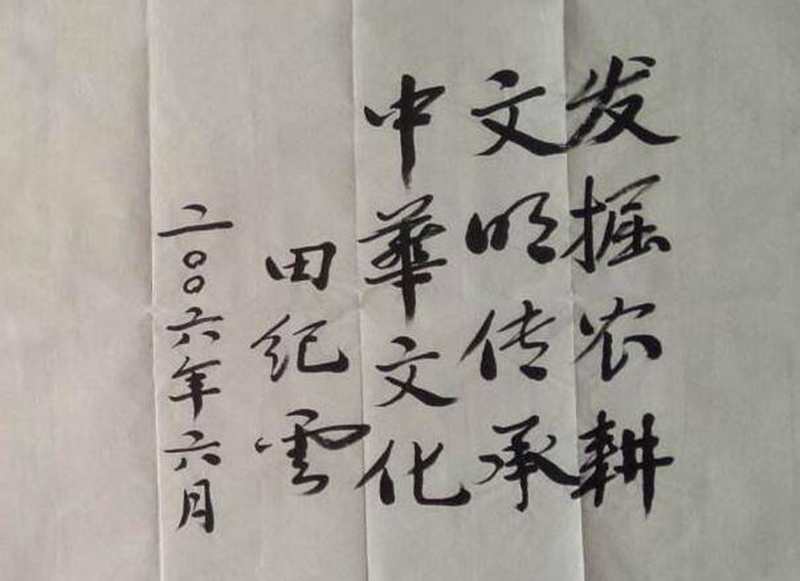 发掘农耕
文明传承
中华文化
田纪雲
二〇〇六年六月